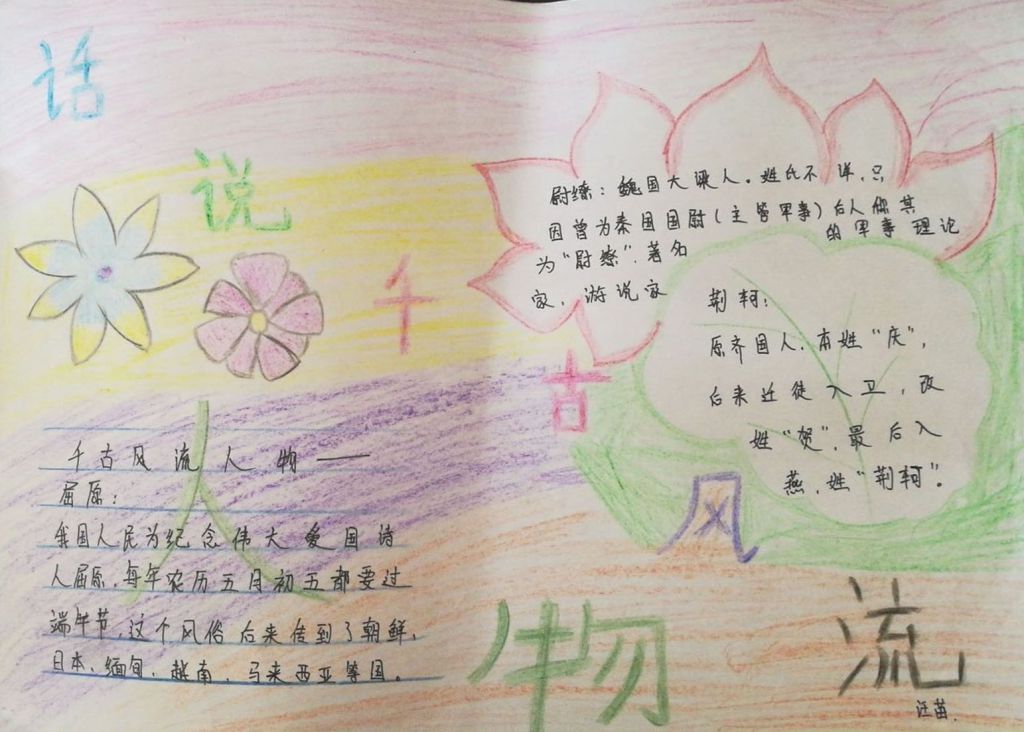 话
说
千
古
风
流
人
物
千古风流人物——
屈原：
我国人民为纪念伟大爱国诗
人屈原，每年农历五月初五都要过
端午节，这个风俗后来传到了朝鲜，
日本、缅甸、越南、马来西亚等国。
尉缭：魏国大梁人。姓氏不详，只
因曾为秦国国尉（主管军事）后人你其
为“尉缭”，著名的军事理论
家，游说家
荆轲：
原齐国人，本姓“庆”，
后来迁徙入卫，改
姓“贺”，最后入
燕，姓“荆轲”。
汪苗.